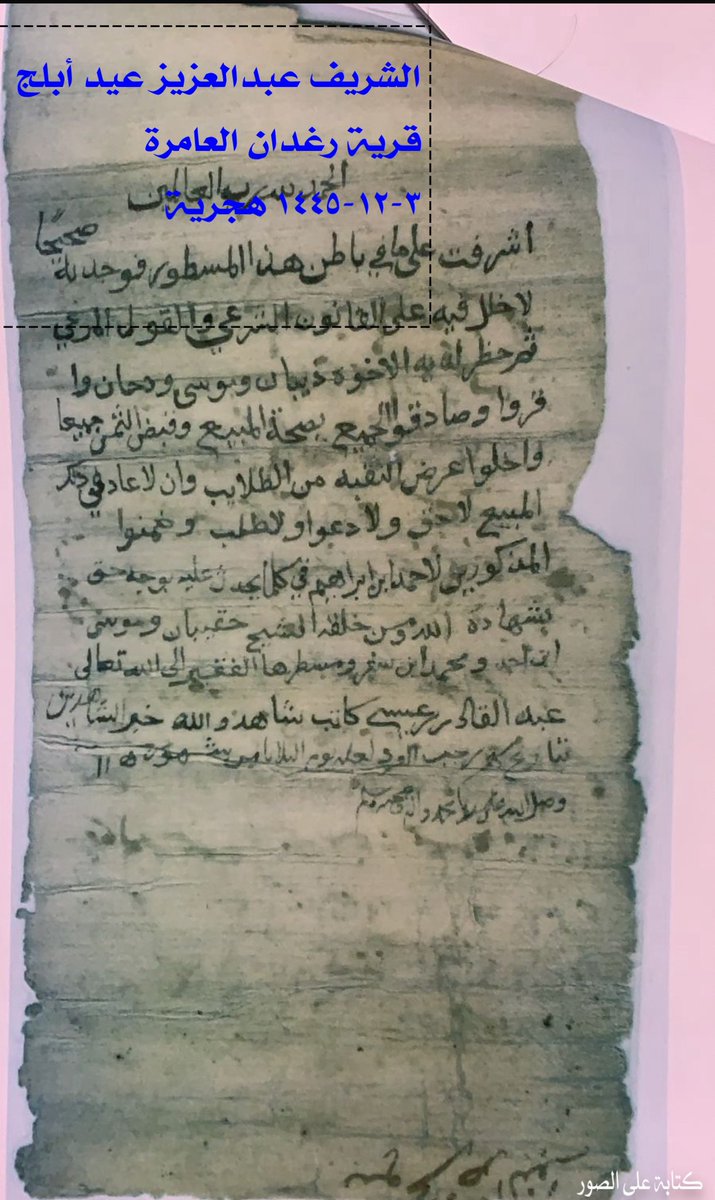 الشريف عبدالعزيز عيد أبلج
قرية رغدان العامرة
٣-١٢-١٤٤٥ هجرية
الحمد لله رب العالمين
اشرفت على ما في باطن هذا المسطور فوجدته صحيحا
لا خلل فيه على القانون الشرعي والقول المرعي
ثم حظر لديه الاخوه ذيبان وموسى ودحان وا
قروا وصادقوا الجميع بصحة المبيع وقبض الثمن جميعا
واخلوا عرض النقبه من الطلايب وان لا عاد في ذكر
المبيع لا حق ولا دعوا ولا طلب وضمنوا
المذكورين لاحمد ابن ابراهيم في كلما يحدث عليه بوجه حق
بشهادة الله ومن خلقه الشيخ وموسى
ابن احمد ومحمد ابن سفر ومسطرها الفقير الى الله تعالى
عبد القادر عيسى كاتب شاهد والله خير الشاهدين
بتاريخ رجب يوم من شهور سنة
وصلى الله على سيدنا محمد وآله وصحبه وسلم
كتابة على الصور